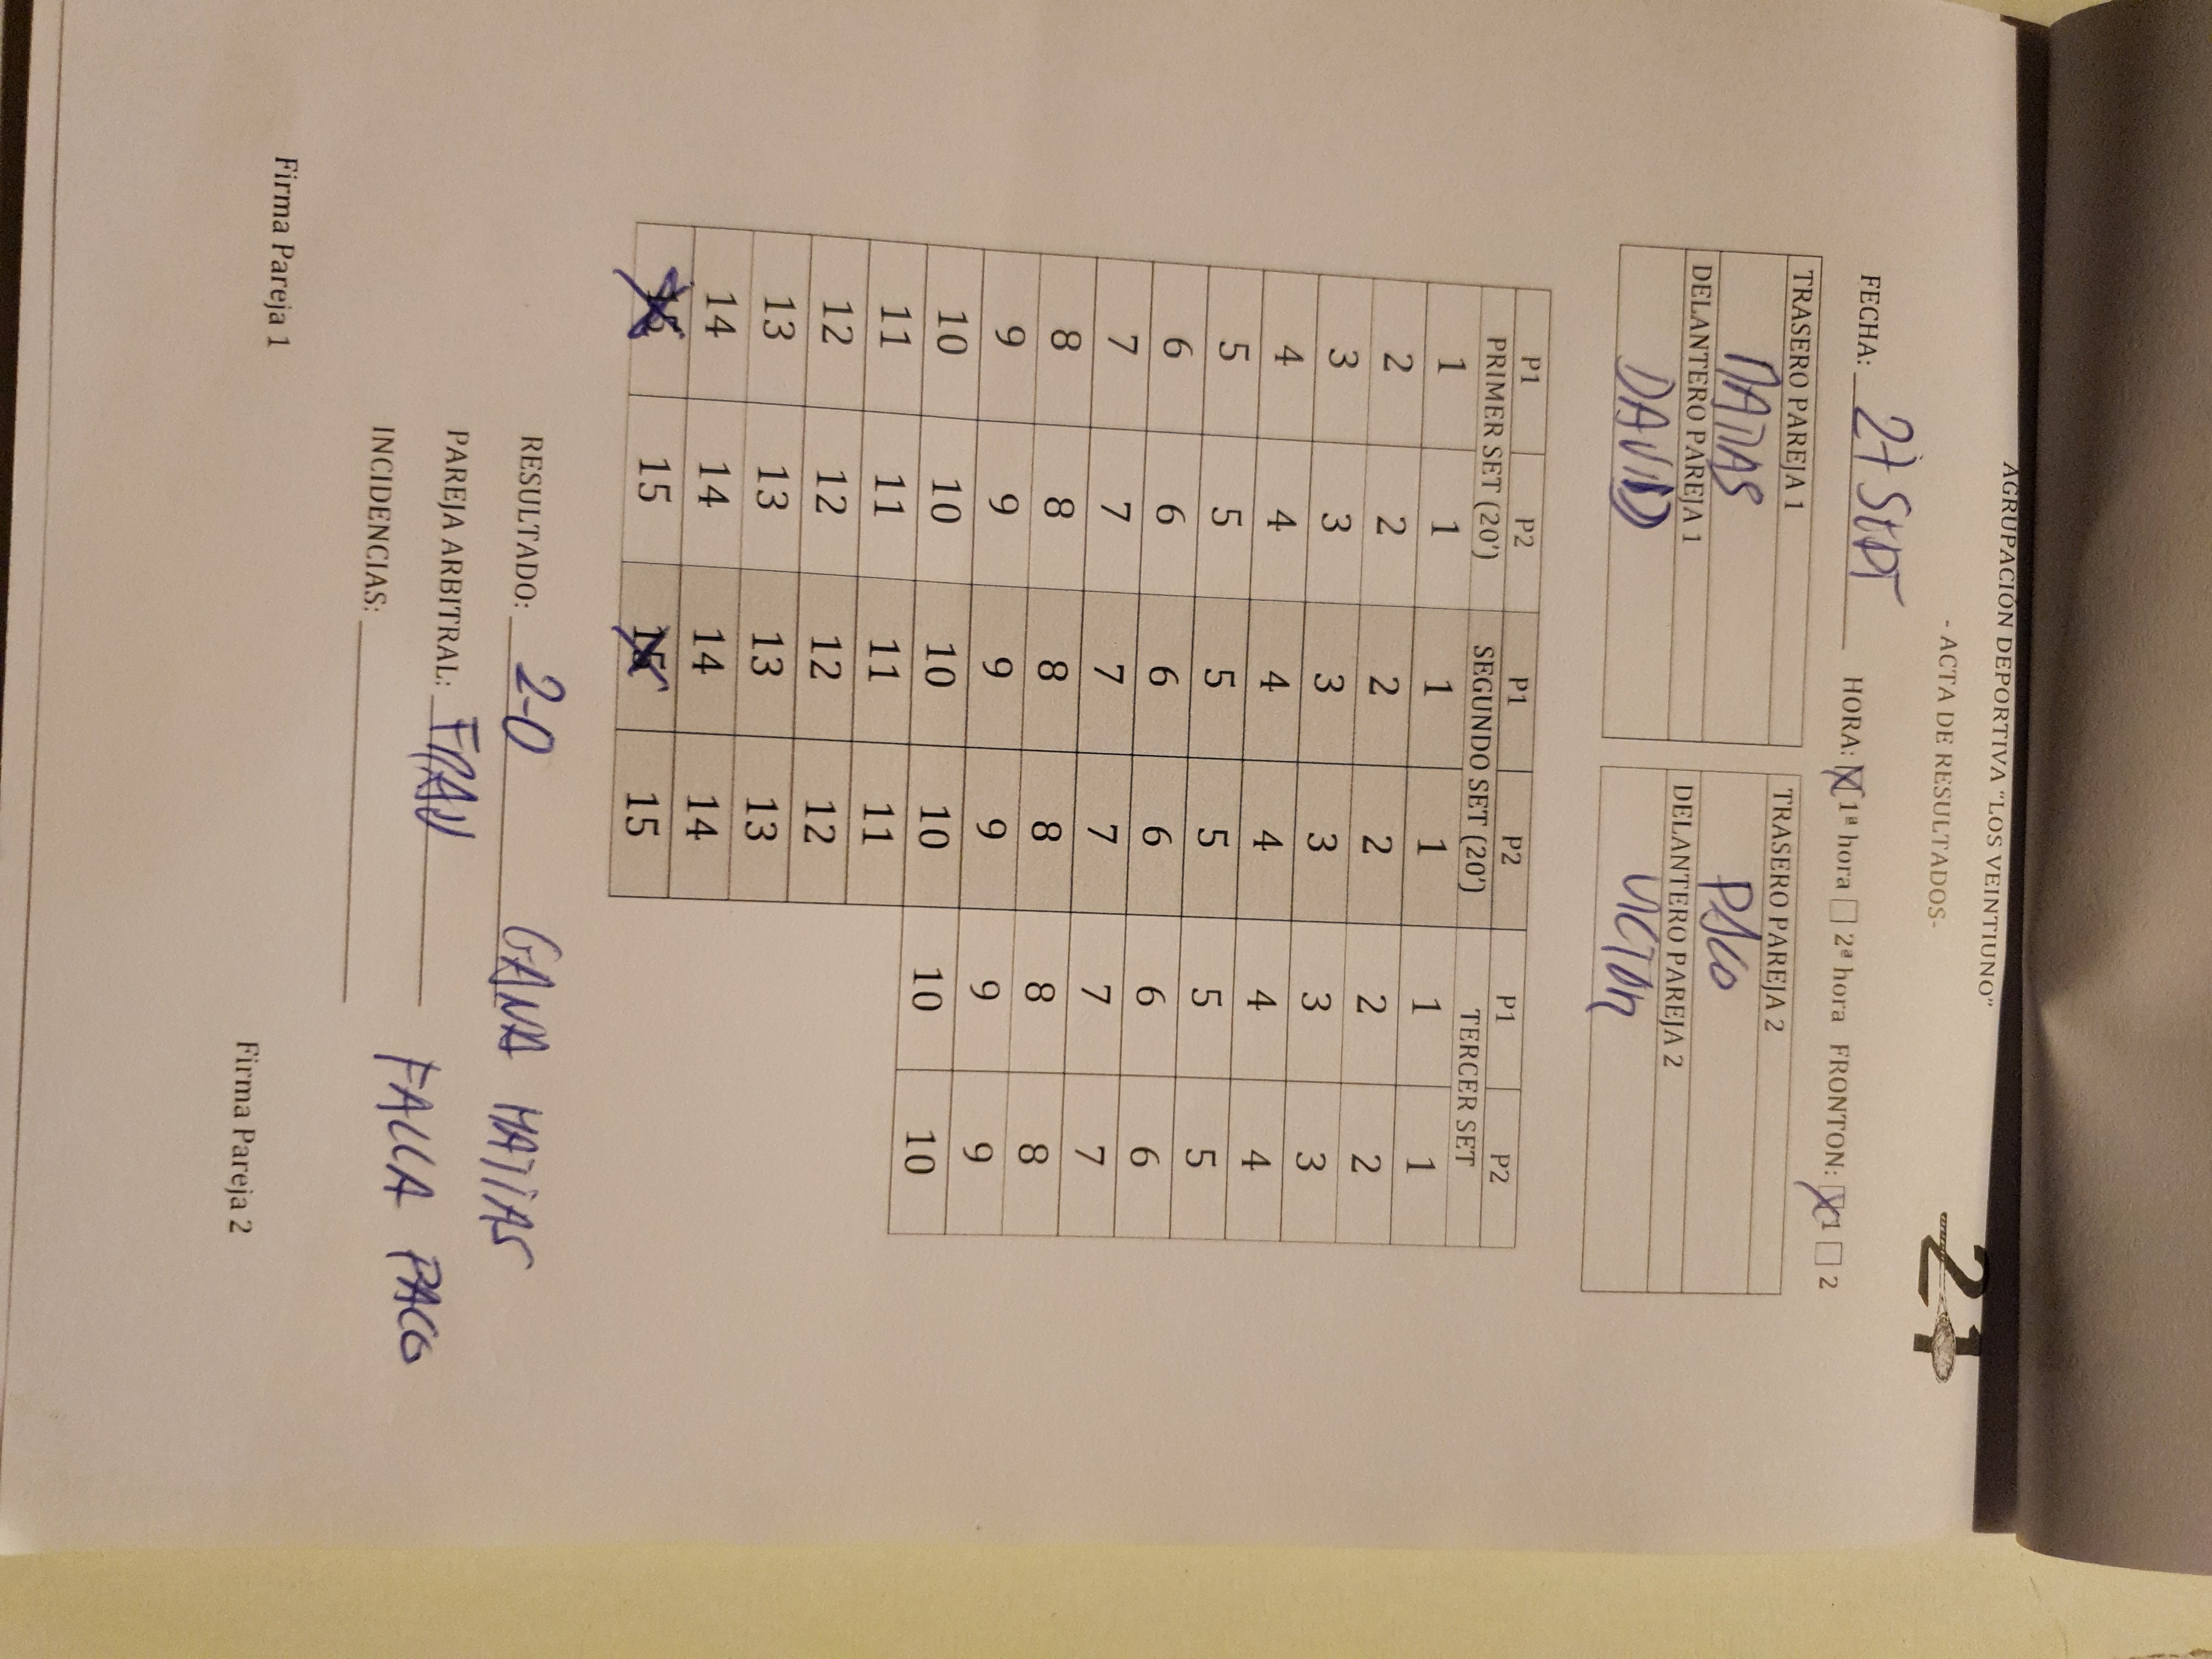 AGRUPACIÓN DEPORTIVA "LOS VEINTIUNO"
- ACTA DE RESULTADOS-
21
FECHA: 27 SEPT HORA: X 1ª hora ☐ 2ª hora FRONTON: X 1 ☐ 2
TRASERO PAREJA 1 TRASERO PAREJA 2
MATIAS PACO
DELANTERO PAREJA 1 DELANTERO PAREJA 2
DAVID VICTOR
P1 P2 P1 P2 P1 P2
PRIMER SET (20') SEGUNDO SET (20') TERCER SET
1 1 1 1 1 1
2 2 2 2 2 2
3 3 3 3 3 3
4 4 4 4 4 4
5 5 5 5 5 5
6 6 6 6 6 6
7 7 7 7 7 7
8 8 8 8 8 8
9 9 9 9 9 9
10 10 10 10 10 10
11 11 11 11
12 12 12 12
13 13 13 13
14 14 14 14
15 15 15 15
RESULTADO: 2-0 GANA MATIAS
PAREJA ARBITRAL: FRAN
INCIDENCIAS: FALLA PACO
Firma Pareja 1 Firma Pareja 2